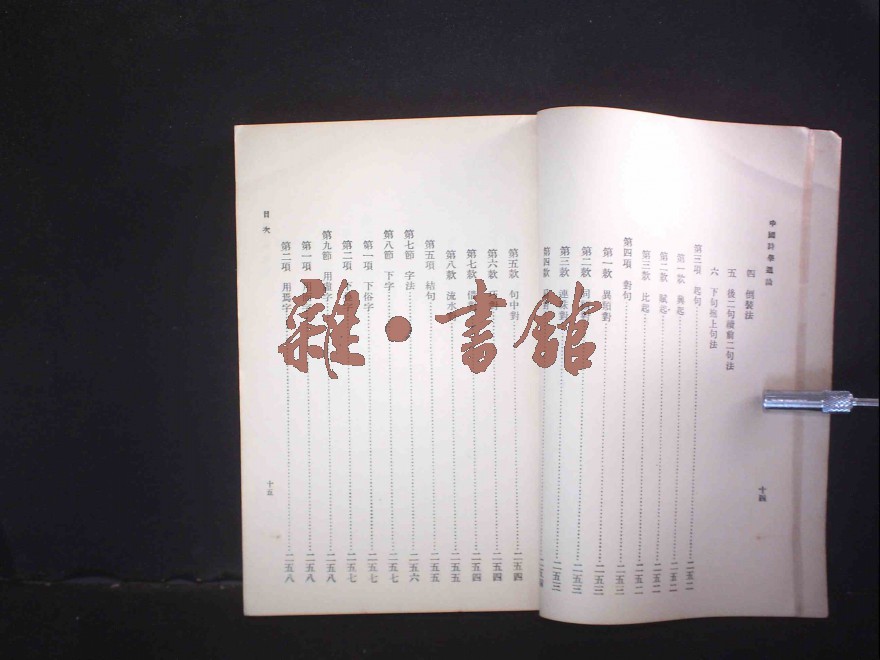 中國詩學通論
四 倒裝法
五 後二句續前二句法
六 下句抱上句法
第三項 起句 二五二
第一款 興起 二五二
第二款 賦起 二五二
第三款 比起 二五二
第四項 對句 二五三
第一款 異類對 二五三
第二款 二五三
第三款 連 二五三
第四款
十四
第五款 句中對 二五四
第六款 二五四
第七款 借 二五四
第八款 流水 二五五
第五項 結句 二五五
第七節 字法 二五六
第八節 下字 二五七
第一項 下俗字 二五七
第二項 下 二五七
第九節 用 字 二五八
第一項 用 二五八
第二項 用 二五八
目次
十五
雜·書館